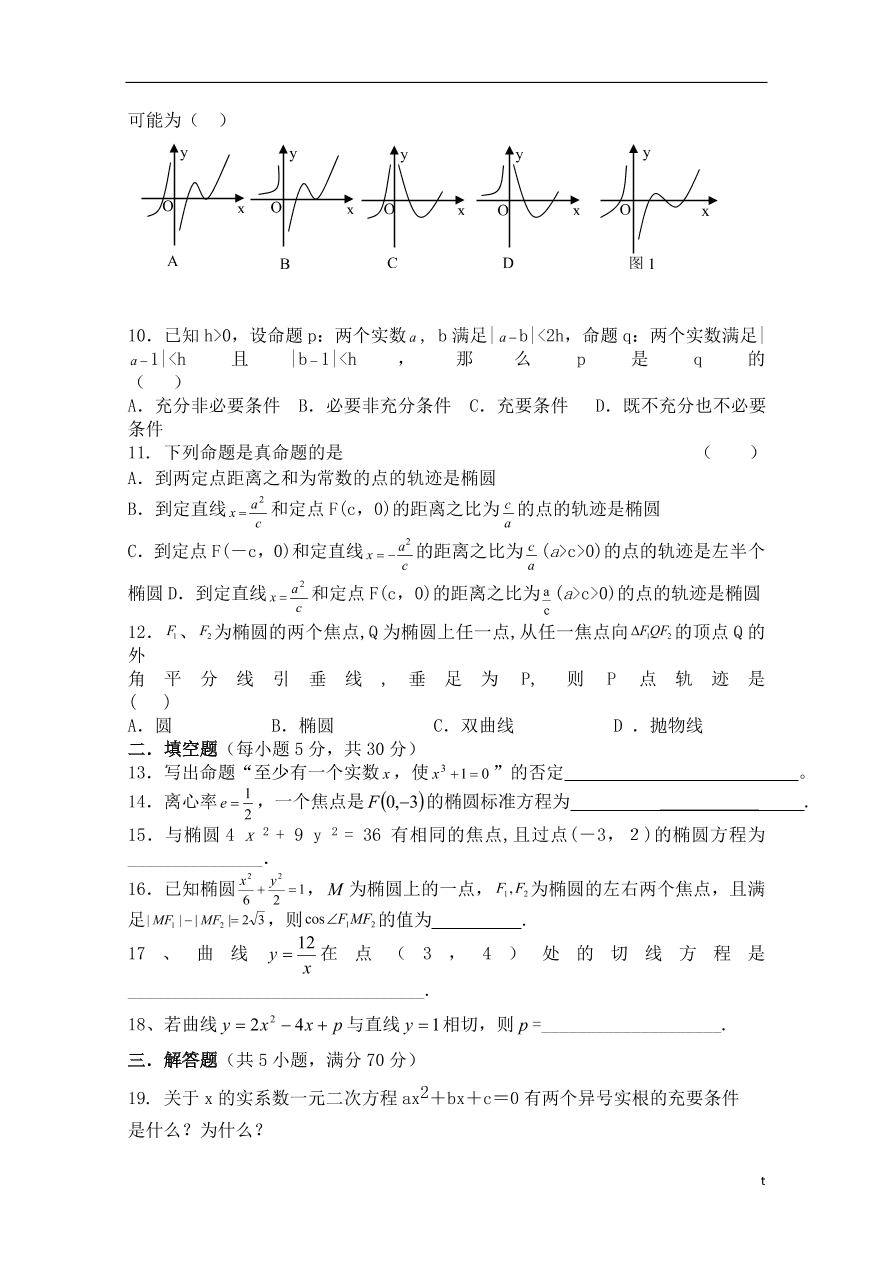 可能为（　）
y y y y y
O x O x O x O x O x
A B C D 图 1
10．已知 h>0，设命题 p：两个实数 a , b 满足| a－b|<2h，命题 q：两个实数满足|
a－1|<h 且 |b－1|<h ， 那 么 p 是 q 的
（　）
A．充分非必要条件 B．必要非充分条件 C．充要条件 D．既不充分也不必要
条件
11. 下列命题是真命题的是 （　）
A．到两定点距离之和为常数的点的轨迹是椭圆
B．到定直线 x = a²/c 和定点 F(c，0)的距离之比为 c/a 的点的轨迹是椭圆
C．到定点 F(－c，0)和定直线 x = －a²/c 的距离之比为 c/a (a>c>0)的点的轨迹是左半个
椭圆 D．到定直线 x = a²/c 和定点 F(c，0)的距离之比为 a/c (a>c>0)的点的轨迹是椭圆
12．F₁、F₂为椭圆的两个焦点,Q 为椭圆上任一点,从任一焦点向 ΔF₁QF₂ 的顶点 Q 的
外
角 平 分 线 引 垂 线 , 垂 足 为 P, 则 P 点 轨 迹 是
(　)
A．圆 B．椭圆 C．双曲线 D ．抛物线
二．填空题（每小题 5 分，共 30 分）
13．写出命题“至少有一个实数 x ，使 x³ +1 = 0 ”的否定________________。
14．离心率 e = 1/2 ，一个焦点是 F(0,−3) 的椭圆标准方程为 ____________ .
15．与椭圆 4 x ² + 9 y ² = 36 有相同的焦点,且过点(－3，２)的椭圆方程为
_______________．
16．已知椭圆 x²/6 + y²/2 = 1 ， M 为椭圆上的一点， F₁ , F₂ 为椭圆的左右两个焦点，且满
足 | MF₁ | − | MF₂ |= 2√3 ，则 cos ∠F₁MF₂ 的值为__________．
17 、 曲 线 y = 12/x 在 点 （ 3 ， 4 ） 处 的 切 线 方 程 是
_________________________________.
18、若曲线 y = 2x² − 4x + p 与直线 y = 1 相切，则 p =____________________.
三．解答题（共 5 小题，满分 70 分）
19. 关于 x 的实系数一元二次方程 ax²＋bx＋c＝0 有两个异号实根的充要条件
是什么？为什么？
t